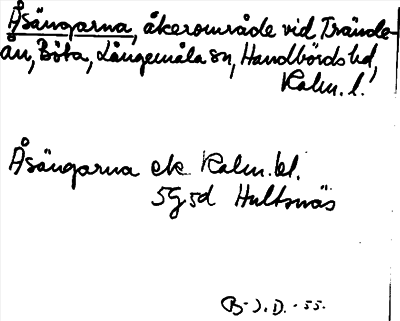 Åsängarna, åkerområde vid Trände-
ån, Böta, Långemåla sn, Handbörds hd,
Kalm. l.
Åsängarna ek Kalm. bl.
5G5d Hultsnäs
B-J. D. -55.